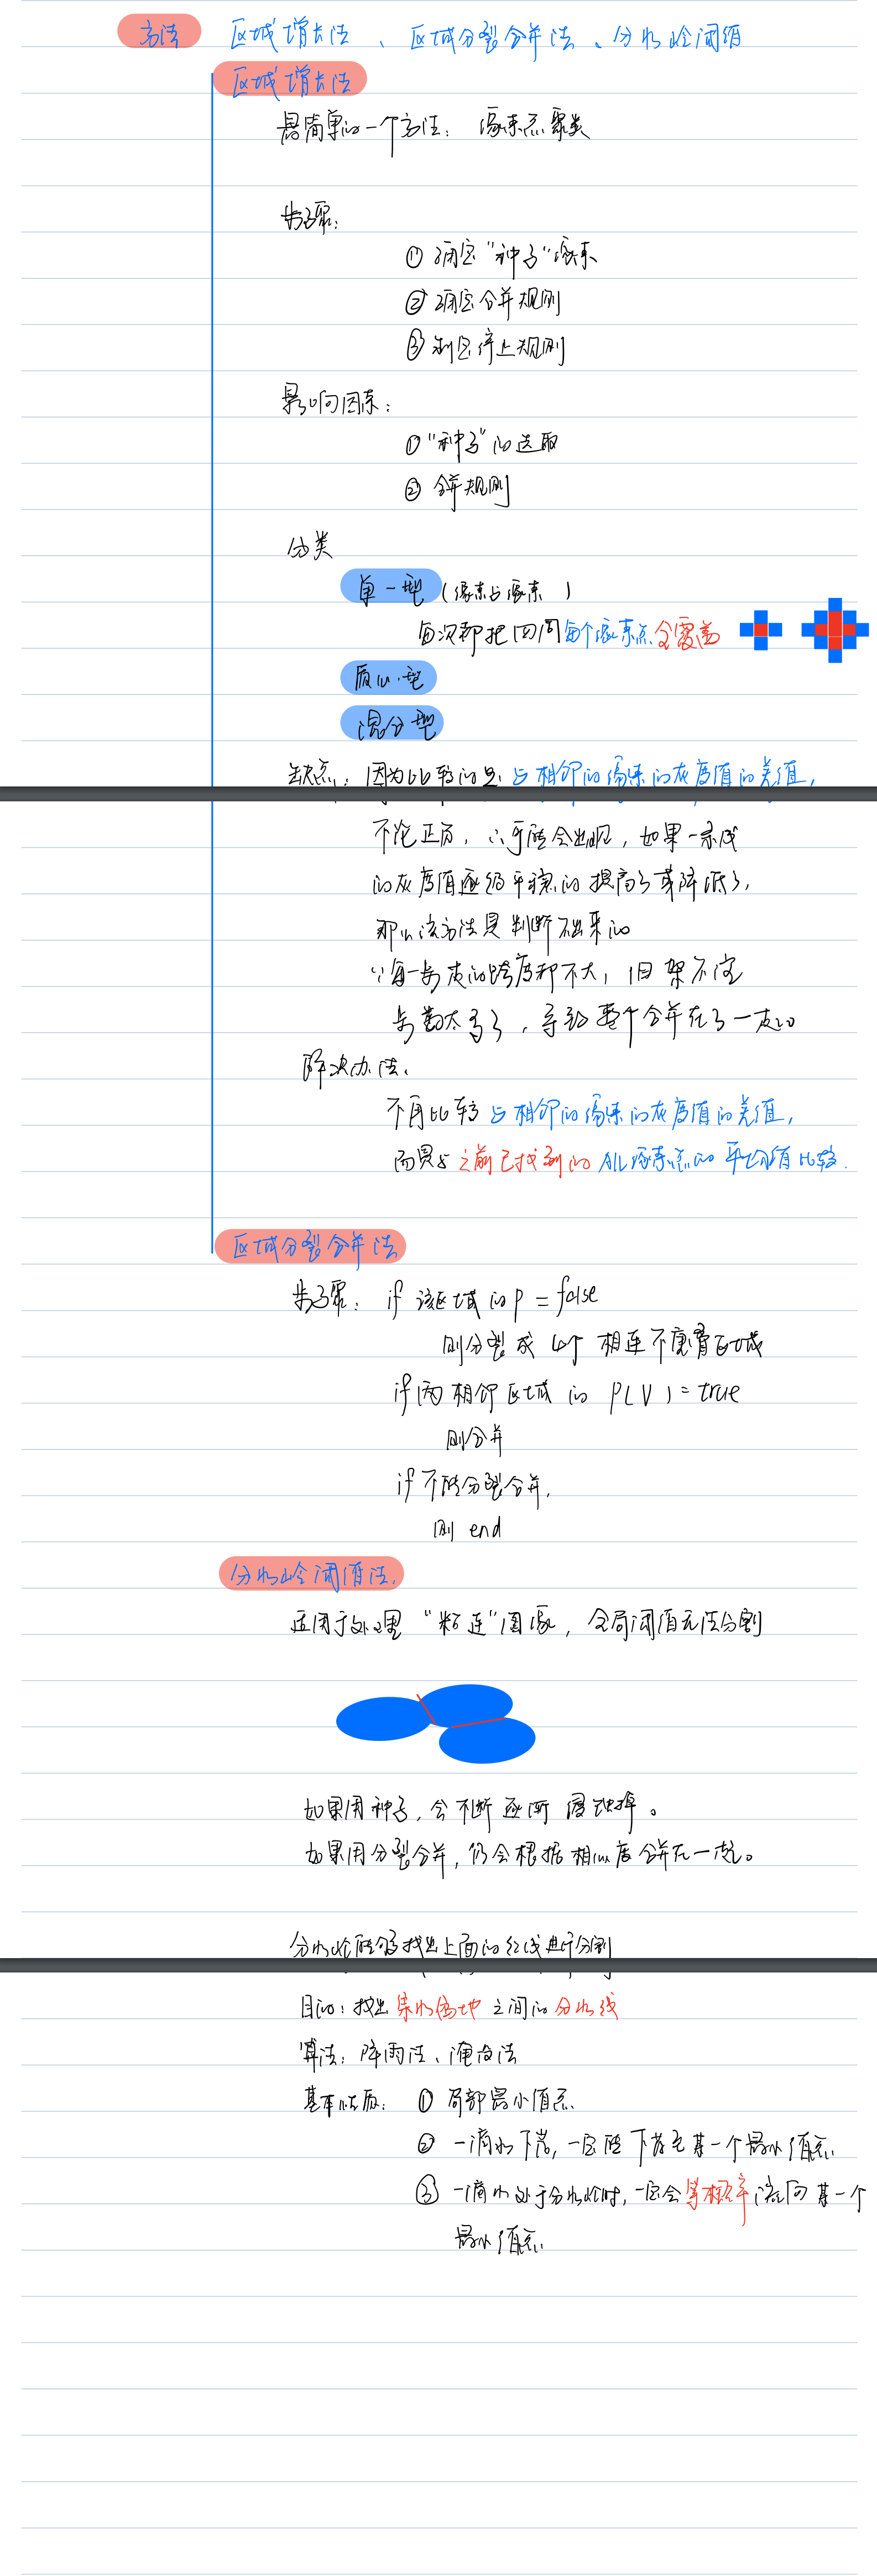 方法 区域增长法、区域分裂合并法、分水岭阈值
区域增长法
最简单的一个方法：像素点聚类
步骤：
① 确定“种子”像素
② 确定合并规则
③ 制定停止规则
影响因素：
① “种子”的选取
② 合并规则
分类
单一型（像素与像素）
每次都把四周每个像素点全覆盖
质心型
混合型
缺点：因为比较的是与相邻的像素的灰度值的差值，
不论正负，∴可能会出现，如果一条线
的灰度值逐级平稳的提高了或降低了，
那么该方法是判断不出来的
∵每一步走的跨度都不大，但架不住
步数太多了，导致整个合并在了一起
解决办法：
不再比较与相邻的像素的灰度值的差值，
而是与之前已找到的 ALL 像素点的平均值比较．
区域分裂合并法
步骤：if 该区域的 P = false
则分裂成 4个 相连不重叠区域
if 两相邻区域的 P(V) = true
则合并
if 不能分裂合并，
则 end
分水岭阈值法．
适用于处理“粘连”图像，全局阈值无法分割
如果用种子，会不断逐渐腐蚀掉。
如果用分裂合并，仍会根据相似度合并在一起。
分水岭能够找出上面的红线进行分割
目的：找出集水盆地之间的分水线
算法：降雨法、淹没法
基本性质：① 局部最小值点
② 一滴水下落，一定能下落至某一个最小值点
③ 一滴水处于分水岭时，一定会等概率流向某一个
最小值点